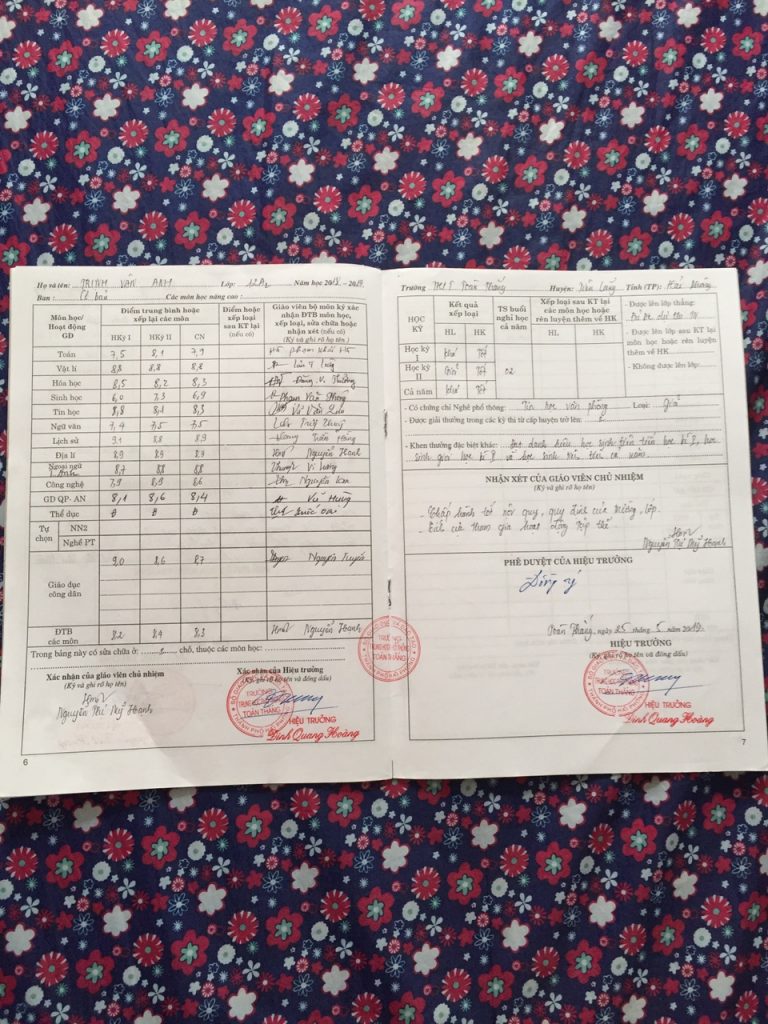 Họ và tên: TRỊNH VÂN ANH Lớp: 12A1 Năm học 2018 - 2019
Ban: Cơ bản Các môn học nâng cao:
Môn học/ Hoạt động GD
Điểm trung bình hoặc xếp loại các môn
HKỳ I HKỳ II CN
Điểm hoặc xếp loại sau KT lại (nếu có)
Giáo viên bộ môn ký xác nhận ĐTB môn học, xếp loại, sửa chữa hoặc nhận xét (nếu có)
(Ký và ghi rõ họ tên)
Toán 7,5 8,1 7,9
Vật lí 8,8 8,8 8,8
Hóa học 8,5 8,2 8,3
Sinh học 6,0 7,3 6,9 Phạm Văn
Tin học 8,8 8,1 8,3
Ngữ văn 7,4 7,5 7,5
Lịch sử 9,1 8,8 8,9
Địa lí 8,9 8,9 8,9 Nguyễn Hạnh
Ngoại ngữ Anh 8,7 8,8 8,8
Công nghệ 7,9 8,9 8,6 Nguyễn
GD QP- AN 8,1 8,6 8,4 Vũ Hường
Thể dục Đ Đ Đ
Tự chọn
NN2
Nghề PT
Giáo dục công dân 9,0 8,6 8,7 Nguyễn
ĐTB các môn 8,2 8,4 8,3 Nguyễn Hạnh
Trong bảng này có sửa chữa ở: chỗ, thuộc các môn học:
Xác nhận của giáo viên chủ nhiệm
(Ký và ghi rõ họ tên)
Nguyễn Thị Mỹ Hạnh
Xác nhận của Hiệu trưởng
(Ký, ghi rõ họ tên và đóng dấu)
HIỆU TRƯỞNG
Đinh Quang Hoàng
6
TRƯỜNG
TRUNG HỌC PHỔ THÔNG
TOÀN THẮNG
Trường THPT Toàn Thắng Huyện: Tiên Lãng Tỉnh (TP): Hải Phòng
HỌC KỲ
Kết quả xếp loại
HL HK
TS buổi nghỉ học cả năm
Xếp loại sau KT lại các môn học hoặc rèn luyện thêm về HK
HL HK
Học kỳ I Khá Tốt
Học kỳ II Giỏi Tốt
Cả năm Khá Tốt
02
- Được lên lớp thẳng:
- Được lên lớp sau KT lại môn học hoặc rèn luyện thêm về HK
- Không được lên lớp:
- Có chứng chỉ Nghề phổ thông: Tin học văn phòng Loại: Giỏi
- Được giải thưởng trong các kỳ thi từ cấp huyện trở lên:
- Khen thưởng đặc biệt khác: Đạt danh hiệu học sinh tiên tiến học kì I, học
sinh giỏi học kì II và học sinh tiên tiến cả năm.
NHẬN XÉT CỦA GIÁO VIÊN CHỦ NHIỆM
(Ký và ghi rõ họ tên)
- Chấp hành tốt nội quy, quy định của trường, lớp.
tham gia hoạt động tập thể
Nguyễn Thị Mỹ Hạnh
PHÊ DUYỆT CỦA HIỆU TRƯỞNG
Đồng ý
Toàn Thắng, ngày 25 tháng 5 năm 2019
HIỆU TRƯỞNG
(Ký, ghi rõ họ tên và đóng dấu)
HIỆU TRƯỞNG
Đinh Quang Hoàng
7